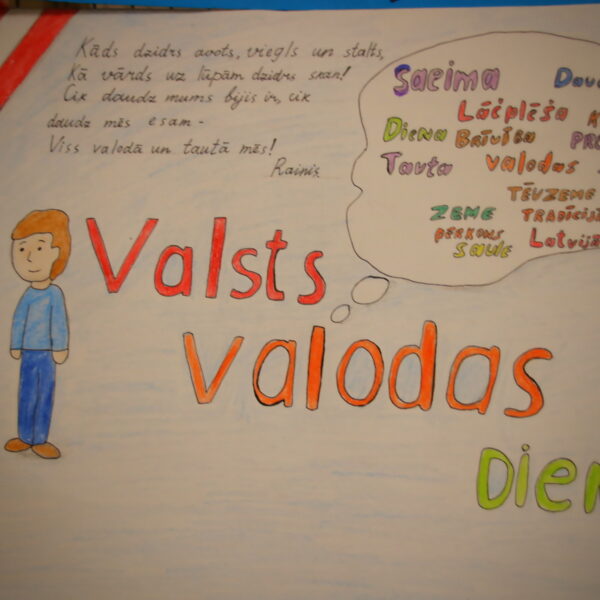 Kāds dzidrs avots, viegls un stalts,
Kā vārds uz lūpām dzidrs skan!
Cik daudz mums bijis ir, cik
daudz mēs esam -
Viss valodā un tautā mēs!
Rainis
Saeima
Lāčplēša
Diena Brīvība
Tauta valodas
TĒVZEME
ZEME TRADĪCIJ
PĒRKONS
SAULE Latvija
Valsts
valodas
Dien